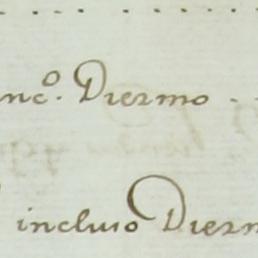 nc.º Diezmo
incluso Diezm